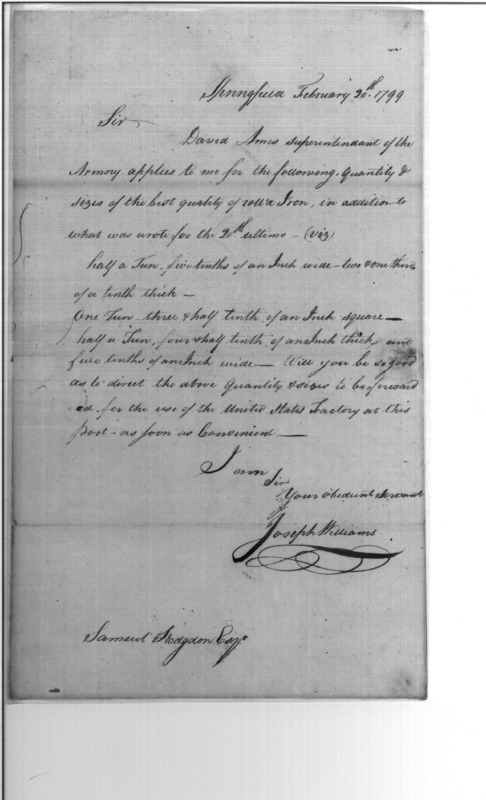 Springfield February 20th. 1799
Sir
David Ames Superintendant of the
Armory applies to me for the following Quantity &
sizes of the best quality of Iron, in addition to
what was wrote for the 20th ultimo - (viz)
half a Tun, five tenths of an Inch wide - two & one third
of a tenth thick -
One Tun three & half tenth of an Inch square -
half a Tun, four & half tenth of an Inch thick, and
five tenths of an Inch wide - Will you be so good
as to direct the above Quantity & sizes to be forward
-ed, for the use of the United States Factory at this
post - as soon as Convenient -
I am
Sir
Your obedient Servant
Joseph Williams
Samuel Hodgdon Esqr